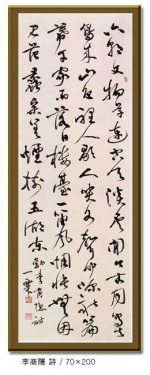 六朝文物草連空天淡雲閒今古同鳥去
鳥來山色裡人歌人哭水聲中深秋簾
幕千家雨落日樓臺一笛風惆悵無因
見范蠡參差煙樹五湖東 李商隱詩
李商隱 詩 / 70×200